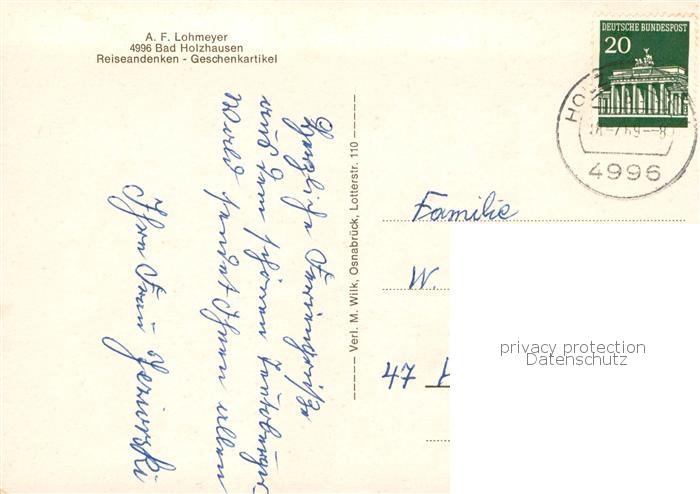 A. F. Lohmeyer
4996 Bad Holzhausen
Reiseandenken - Geschenkartikel
DEUTSCHE BUNDESPOST
20
HOL
-7.69--8
4996
Herzliche Feriengrüße
aus dem schönen Teutoburger
Wald sendet Ihnen allen
Ihre Frau
Verl. M. Wilk, Osnabrück, Lotterstr. 110
Familie
W.
47
privacy protection
Datenschutz